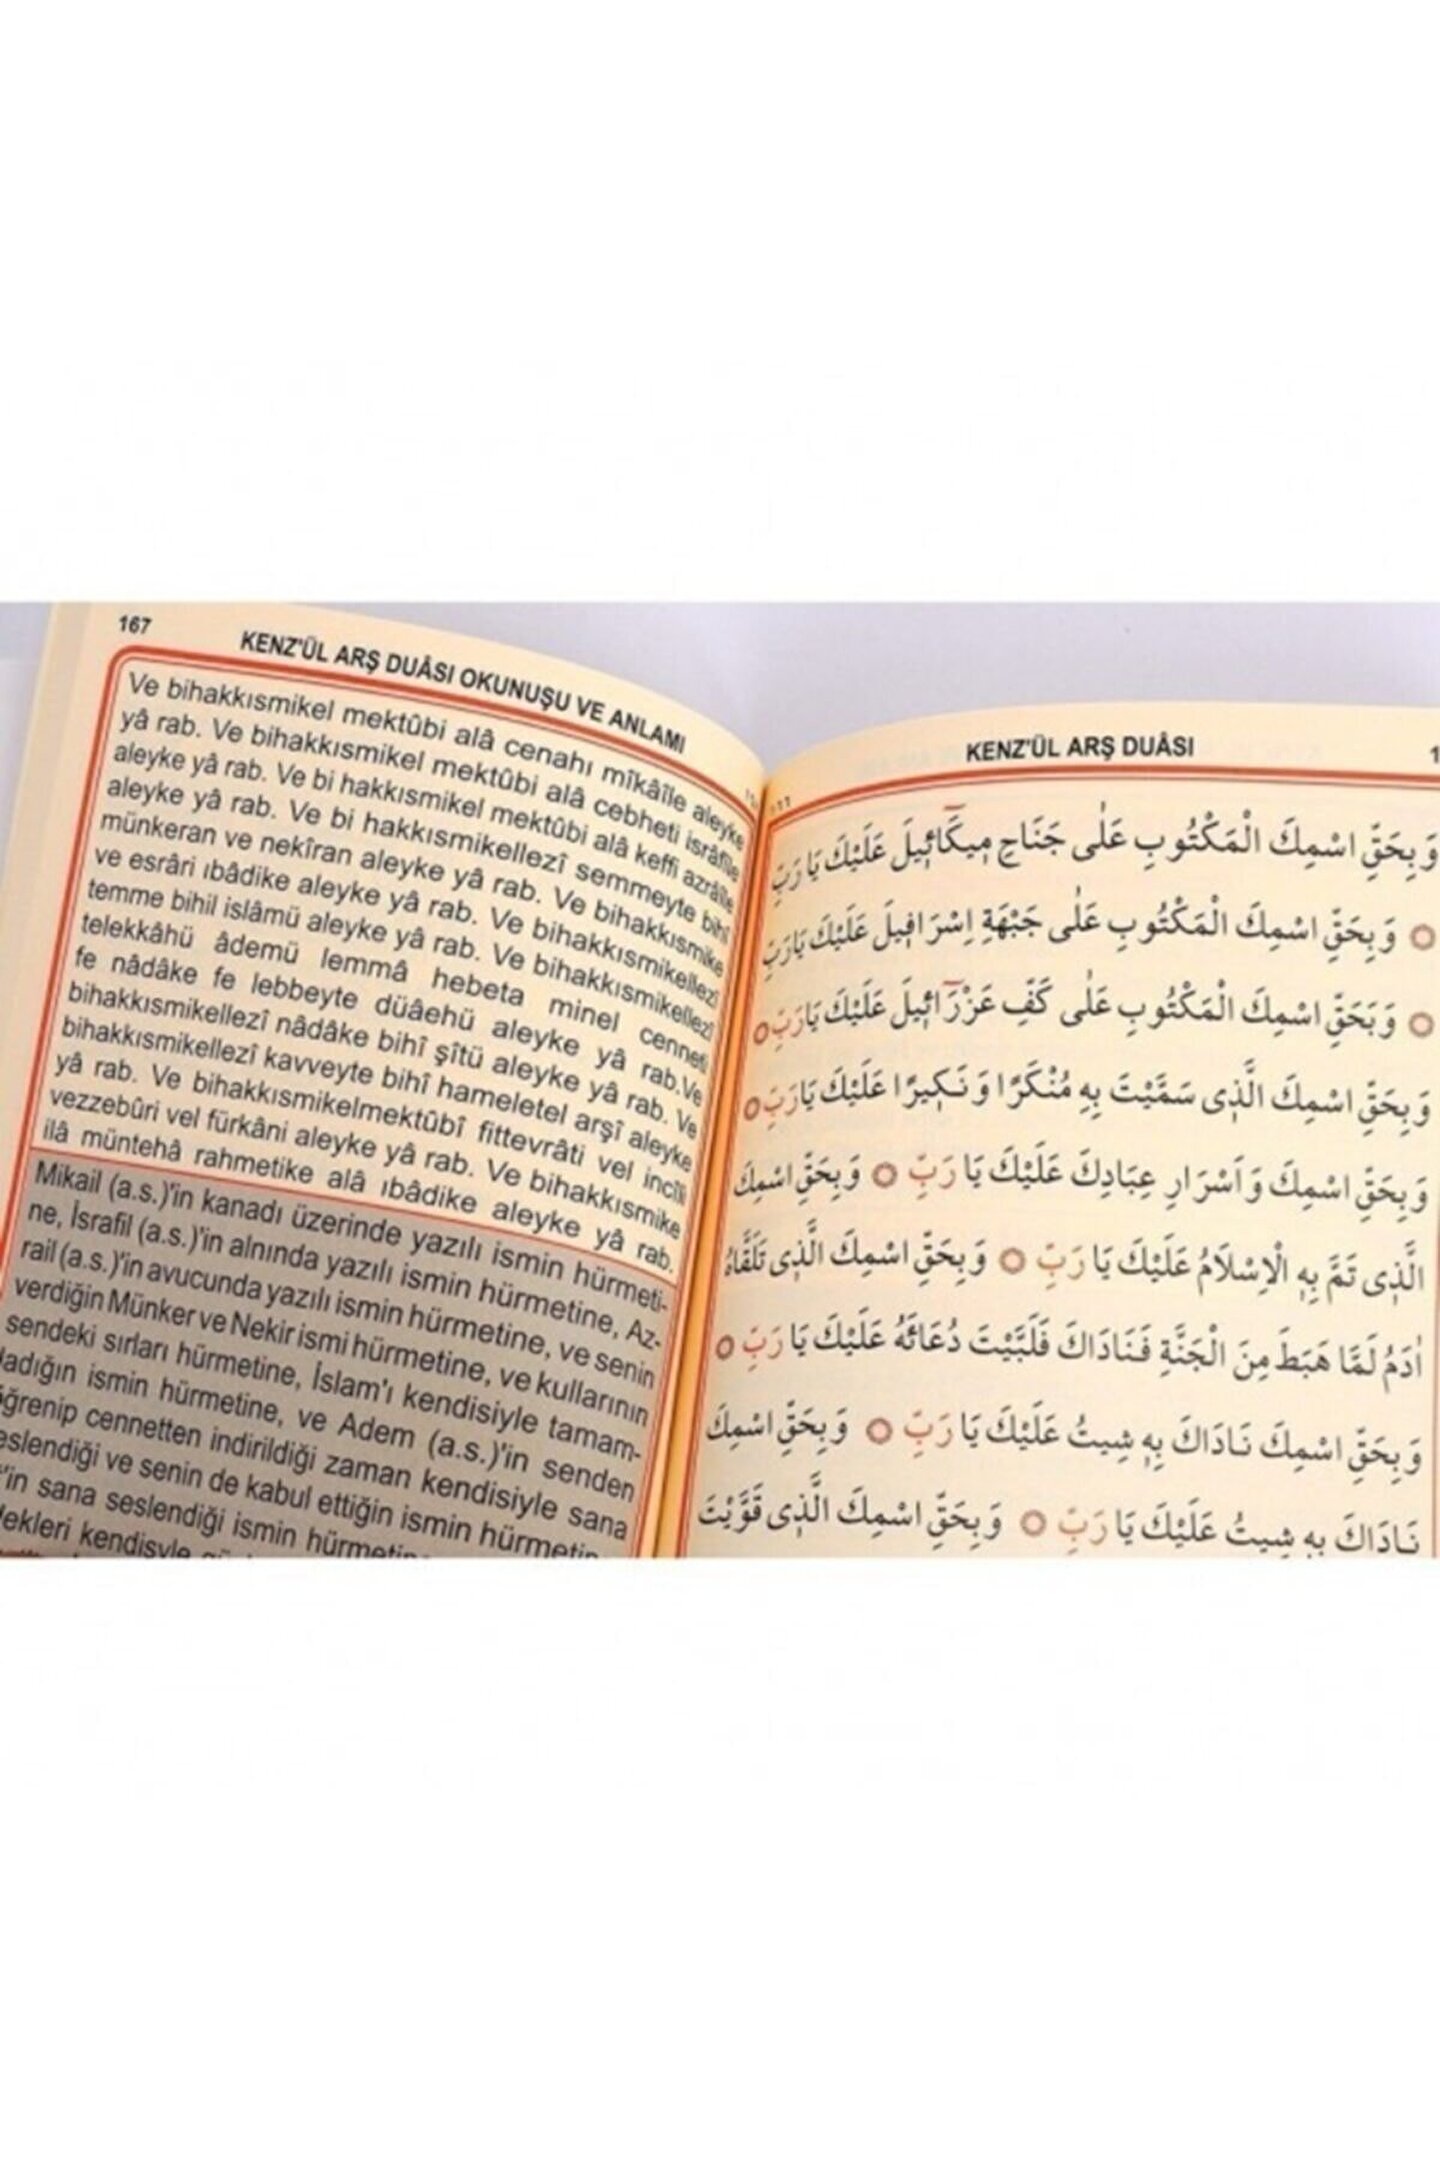 167
KENZ'ÜL ARŞ DUÂSI OKUNUŞU VE ANLAMI
Ve bihakkısmikel mektûbi alâ cenahı mîkâîle aleyke
yâ rab. Ve bihakkısmikel mektûbi alâ cebheti isrâfîle
aleyke yâ rab. Ve bi hakkısmikel mektûbi alâ keffi azrâîle
aleyke yâ rab. Ve bi hakkısmikellezî semmeyte bihî
münkeran ve nekîran aleyke yâ rab. Ve bihakkısmike
ve esrâri ıbâdike aleyke yâ rab. Ve bihakkısmikellezî
temme bihil islâmü aleyke yâ rab. Ve bihakkısmikellezî
telekkâhü âdemü lemmâ hebeta minel cenneti
fe nâdâke fe lebbeyte düâehü aleyke yâ rab.Ve
bihakkısmikellezî nâdâke bihî şîtü aleyke yâ rab. Ve
bihakkısmikellezî kavveyte bihî hameletel arşî aleyke
yâ rab. Ve bihakkısmikelmektûbî fittevrâti vel incîli
vezzebûri vel fürkâni aleyke yâ rab. Ve bihakkısmike
ilâ müntehâ rahmetike alâ ıbâdike aleyke yâ rab.
Mikail (a.s.)'in kanadı üzerinde yazılı ismin hürmeti-
ne, İsrafil (a.s.)'in alnında yazılı ismin hürmetine, Az-
rail (a.s.)'in avucunda yazılı ismin hürmetine, ve senin
verdiğin Münker ve Nekir ismi hürmetine, ve kullarının
sendeki sırları hürmetine, İslam'ı kendisiyle tamam-
ladığın ismin hürmetine, ve Adem (a.s.)'in senden
öğrenip cennetten indirildiği zaman kendisiyle sana
seslendiği ve senin de kabul ettiğin ismin hürmetine
'in sana seslendiği ismin
kendisyle
KENZ'ÜL ARŞ DUÂSI
وَبِحَقِّ اسْمِكَ الْمَكْتُوبِ عَلٰى جَنَاحِ مٖيكَآئٖيلَ عَلَيْكَ يَا رَبِّ
وَبِحَقِّ اسْمِكَ الْمَكْتُوبِ عَلٰى جَبْهَةِ اِسْرَافٖيلَ عَلَيْكَ يَارَبِّ
وَبَحَقِّ اسْمِكَ الْمَكْتُوبِ عَلٰى كَفِّ عَزْرَآئٖيلَ عَلَيْكَ يَارَبِّ
وَبِحَقِّ اسْمِكَ الَّذٖى سَمَّيْتَ بِهٖ مُنْكَرًا وَنَكٖيرًا عَلَيْكَ يَارَبِّ
وَبِحَقِّ اسْمِكَ وَاَسْرَارِ عِبَادِكَ عَلَيْكَ يَا رَبِّ وَبِحَقِّ اسْمِكَ
الَّذٖى تَمَّ بِهِ الْاِسْلَامُ عَلَيْكَ يَا رَبِّ وَبِحَقِّ اسْمِكَ الَّذٖى تَلَقَّاهُ
اٰدَمُ لَمَّا هَبَطَ مِنَ الْجَنَّةِ فَنَادَاكَ فَلَبَّيْتَ دُعَائَهُ عَلَيْكَ يَا رَبِّ
وَبِحَقِّ اسْمِكَ نَادَاكَ بِهٖ شٖيتُ عَلَيْكَ يَا رَبِّ وَبِحَقِّ اسْمِكَ
نَادَاكَ بِهٖ شٖيتُ عَلَيْكَ يَا رَبِّ وَبِحَقِّ اسْمِكَ الَّذٖى قَوَّيْتَ